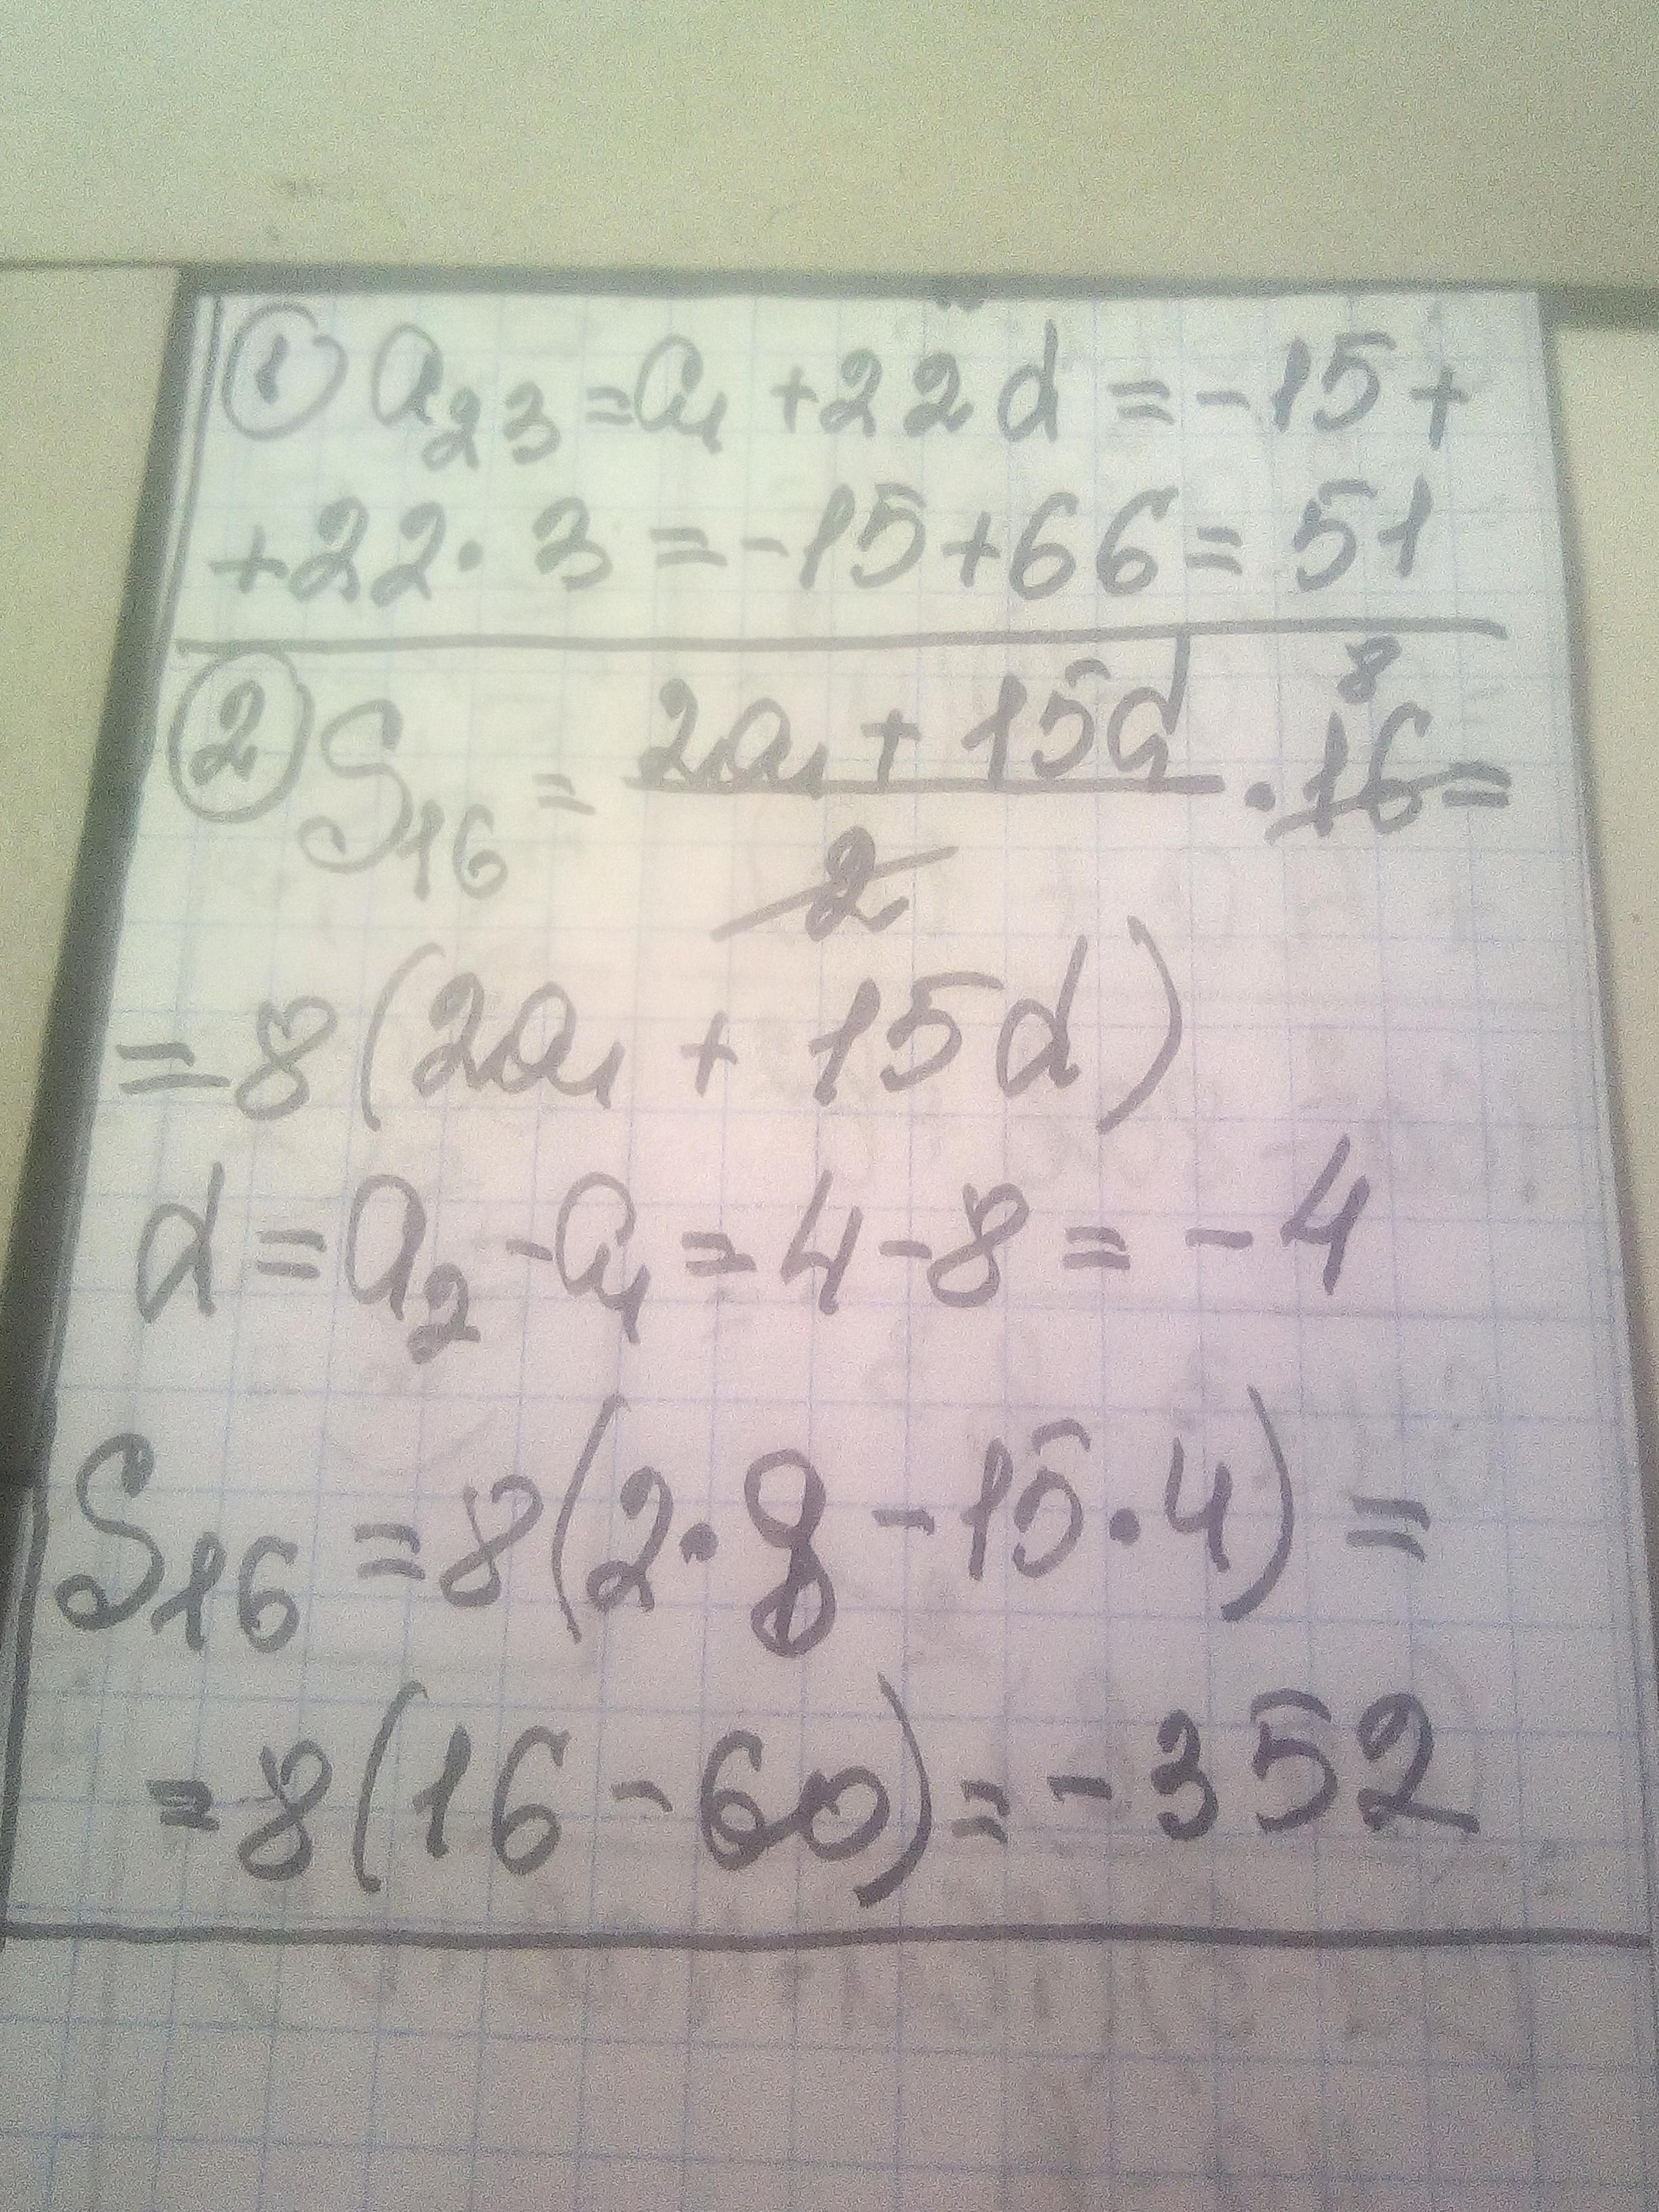 ① a₂₃ = a₁ + 22d = -15 +
+ 22 · 3 = -15 + 66 = 51
② S₁₆ = (2a₁ + 15d)/2 · 16 8 =
= 8(2a₁ + 15d)
d = a₂ - a₁ = 4 - 8 = -4
S₁₆ = 8(2 · 8 - 15 · 4) =
= 8(16 - 60) = -352